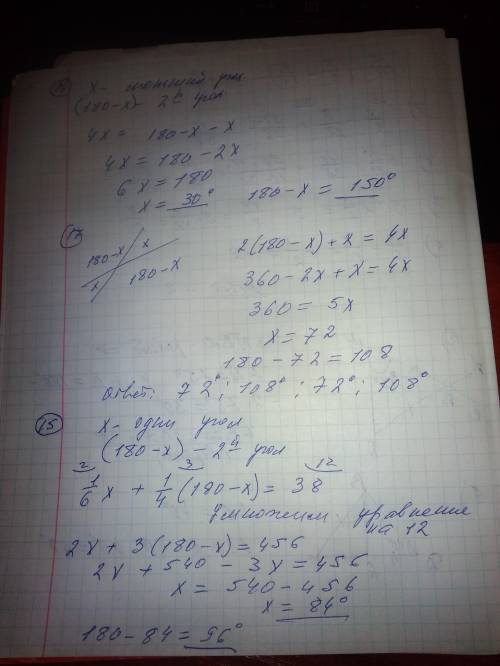 16 x - меньший угол
(180-x) - 2й угол
4x = 180-x-x
4x = 180-2x
6x = 180
x = 30°
180-x = 150°
17
180-x x
x 180-x
2(180-x)+x = 4x
360-2x+x = 4x
360 = 5x
x = 72
180-72 = 108
Ответ: 72°; 108°; 72°; 108°
15 x - один угол
(180-x) - 2й угол
2 3 12
1/6 x + 1/4 (180-x) = 38
Умножим уравнение
на 12
2x + 3(180-x) = 456
2x + 540 - 3x = 456
x = 540-456
x = 84°
180-84 = 96°